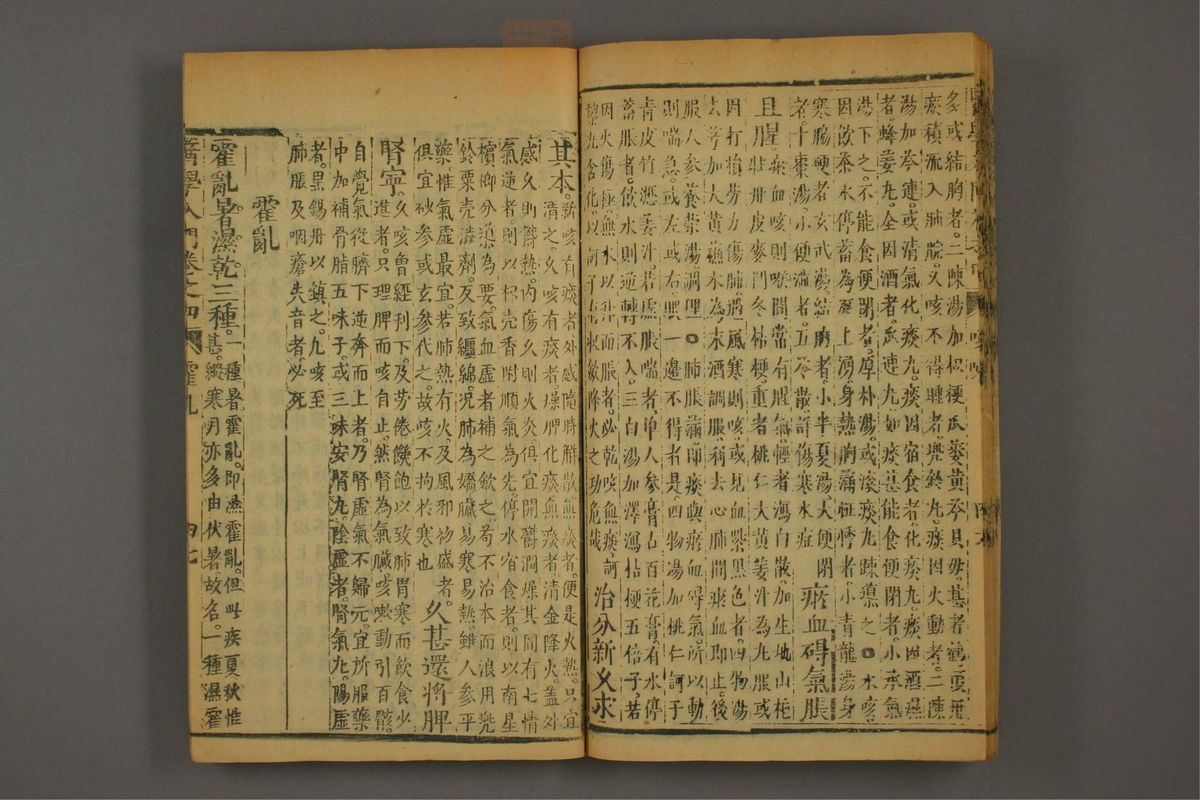 多或結胸者二陳湯加枳梗瓜蔞黃芩貝母甚者鶴頂丹
痰積流入肺脘久咳不得睡者兜鈴丸痰因火動者二陳
湯加芩連或清氣化痰丸痰因宿食者化痰丸痰因酒濕
者蜂薑丸全因酒者瓜連丸如痰甚能食便閉者小承氣
湯下之不能食便閉者厚朴湯或滾痰丸疎導之○水咳
因飲茶水停蓄為涎上湧身熱胸滿怔悸者小青龍湯身
寒腸硬者玄武湯結胸者小半夏湯大便閉
者十棗湯小便澁者五苓散詳傷寒水症
瘀血碍氣脹
且腥
瘀血咳則喉間常有腥氣輕者瀉白散加生地山梔
牡丹皮麥門冬桔梗重者桃仁大黃姜汁為丸服或
因打損勞力傷肺遇風寒則咳或見血紫黑色者四物湯
去芎加大黃蘇木為末酒調服利去心肺間瘀血即止後
服人參養榮湯調理○肺脹滿即痰與瘀血碍氣所以動
則喘急或左或右眠一邊不得者是四物湯加桃仁訶子
青皮竹瀝姜汁若虛脹喘者單人參膏古百花膏有水停
蓄脹者飲水則逆轉不入三白湯加澤瀉桔梗五倍子若
因火傷極無水以升而脹者必乾咳無痰訶
黎丸含化以訶子有收斂降火之功危哉
治分新久求
其本
新咳有痰者外感隨時解散無痰者便是火熱只宜
清之久咳有痰者燥脾化痰無痰者清金降火蓋外
感久則鬱熱內傷久則火炎俱宜開鬱潤燥其間有七情
氣逆者則以枳壳香附順氣為先停水宿食者則以南星
檳榔分導為要氣血虛者補之斂之苟不治本而浪用兜
鈴粟壳澁劑反致纏綿況肺為嬌臟易寒易熱雖人參平
藥惟氣虛最宜若肺熱有火及風邪初盛者
俱宜沙參或玄參代之故咳不拘於寒也
久甚還將脾
腎寧
久咳曾經利下及勞倦饑飽以致肺胃寒而飲食少
進者只理脾而咳自止然腎為氣臟咳嗽動引百骸
自覺氣從臍下逆奔而上者乃腎虛氣不歸元宜所服藥
中加補骨脂五味子或三味安腎丸陰虛者腎氣丸陽虛
者黑錫丹以鎮之凡咳至
肺脹及咽瘡失音者必死
霍亂
霍亂暑濕乾三種
一種暑霍亂即濕霍亂但此疾夏秋惟
甚縱寒月亦多由伏暑故名一種濕霍
醫學入門卷之四
霍亂
四七